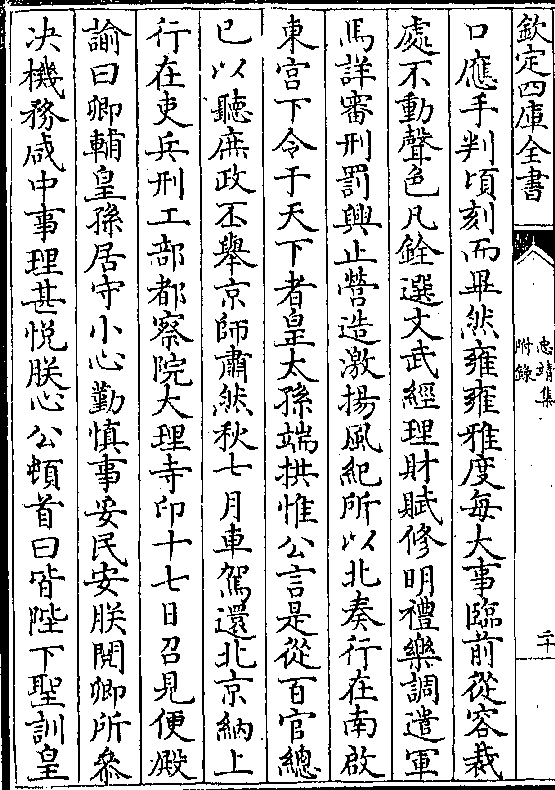 欽定四庫全書
忠靖集
附錄
二十
口應手判頃刻而畢然雍雍雅度每大事臨前從容裁
處不動聲色凡銓選文武經理財賦修明禮樂調遣軍
馬詳審刑罰興止營造激揚風紀所以北奏行在南啟
東宮下令于天下者皇太孫端拱惟公言是從百官總
已以聽庶政丕舉京師肅然秋七月車駕還北京納上
行在吏兵刑工部都察院大理寺印十七日召見便殿
諭曰卿輔皇孫居守小心勤慎事妥民安朕閱卿所叅
决機務咸中事理甚悅朕心公頓首曰皆陛下聖訓皇